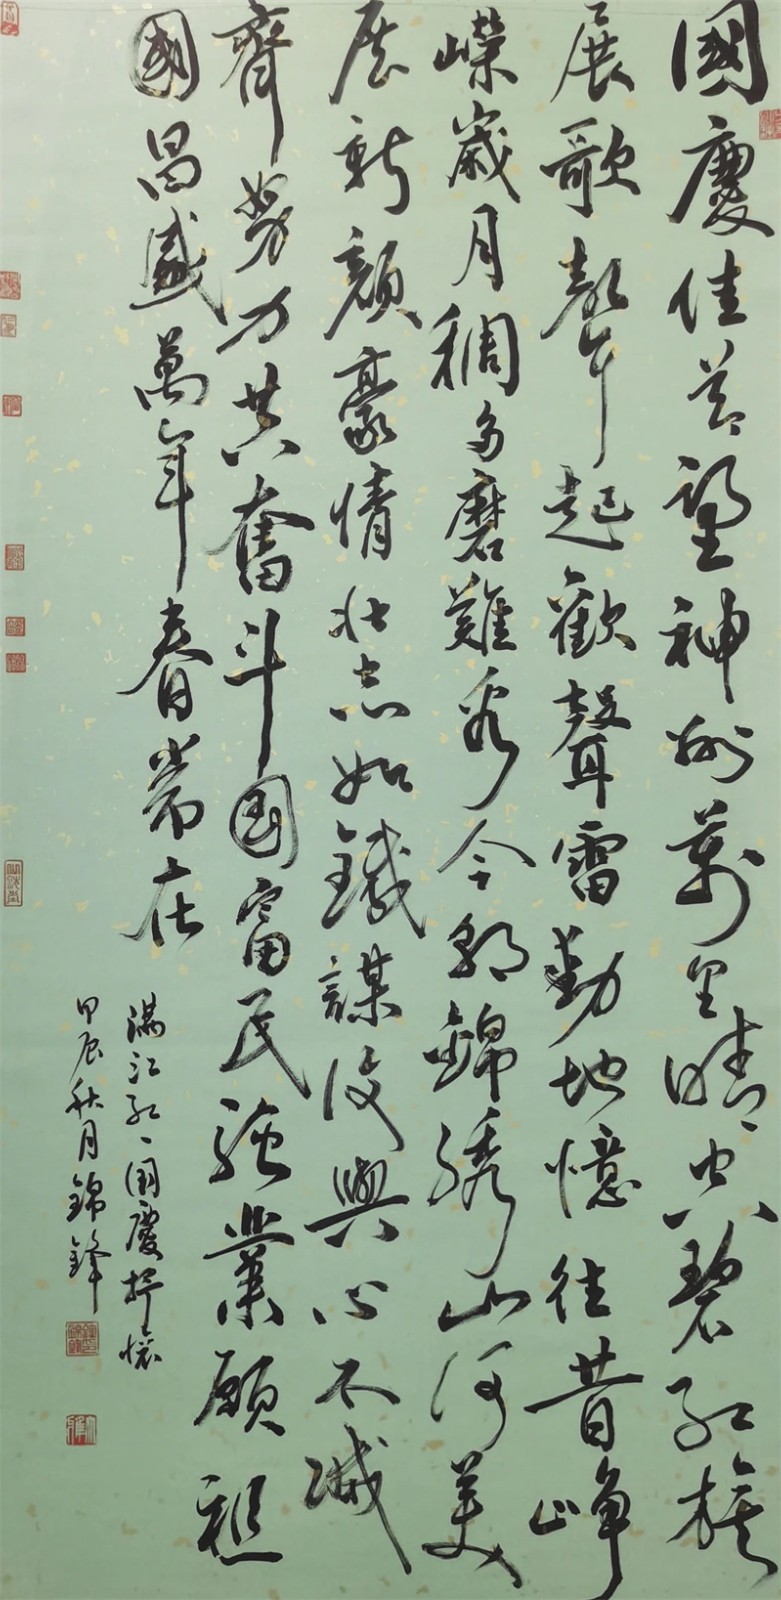 國慶佳節望神州萬里晴空碧紅旗
展歌聲起歡聲雷動地憶往昔崢
嶸歲月稠多磨難看今朝錦繡山河美
展新顏豪情壯志如鐵謀復興心不減
齊努力共奮斗國富民強業願祖
國昌盛萬年春常在
滿江紅、國慶抒懷
甲辰秋月錦鋒